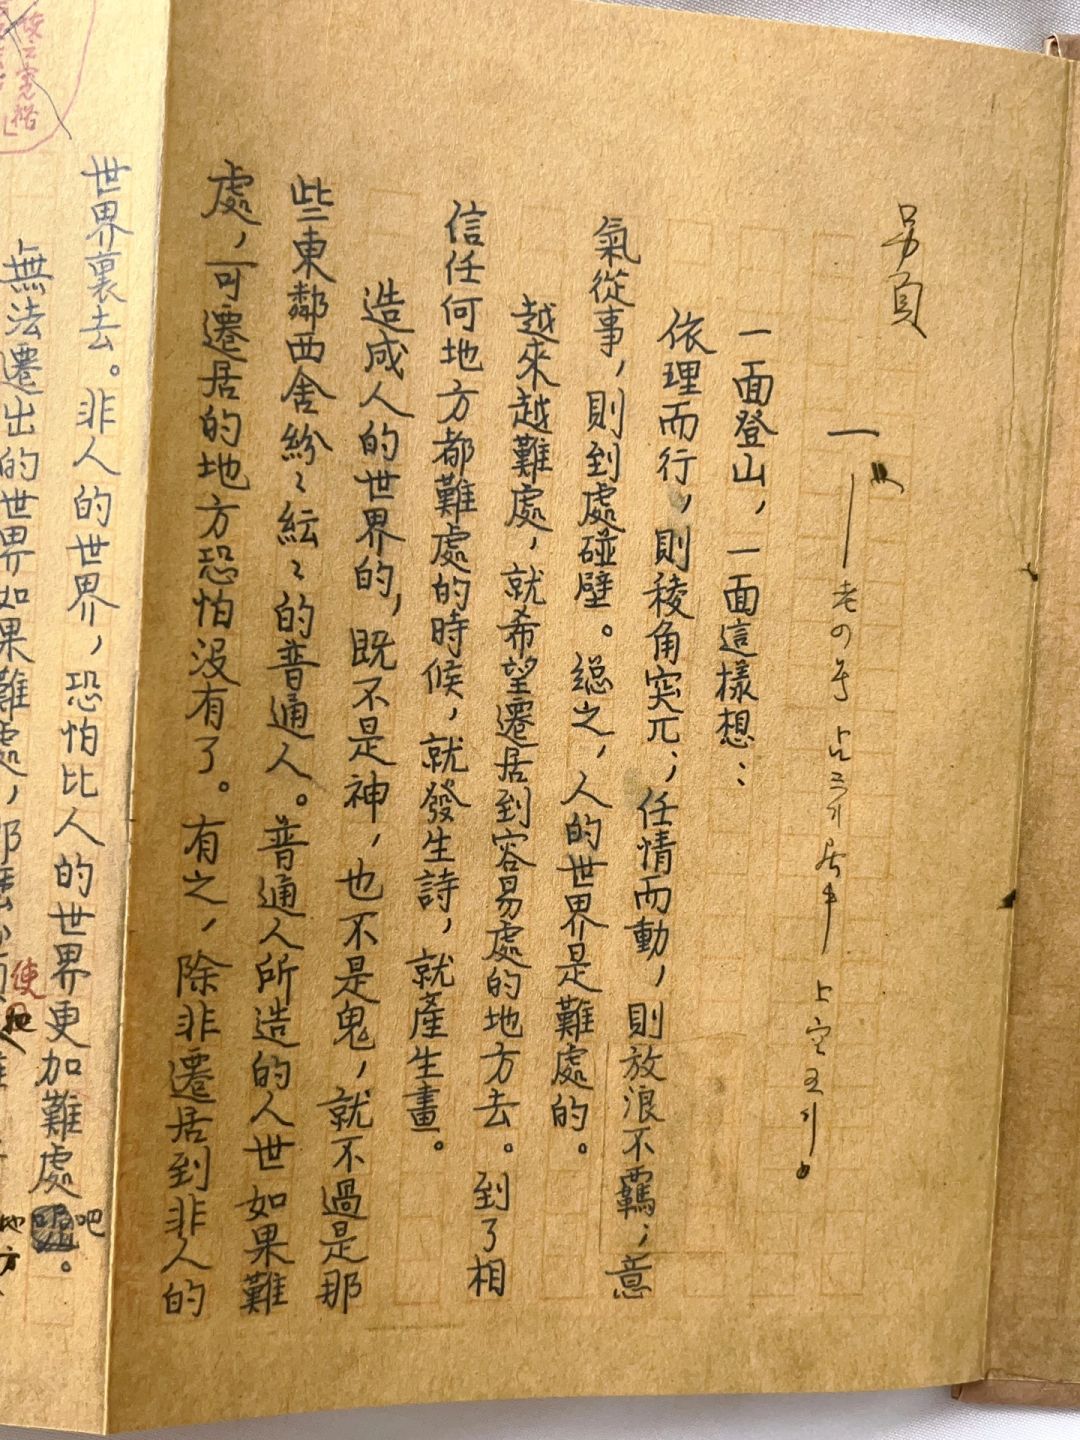 另頁
一
老4号 占三行居中 上空五行
一面登山，一面這樣想：
依理而行，則稜角突兀；任情而動，則放浪不羈；意
氣從事，則到處碰壁。總之，人的世界是難處的。
越來越難處，就希望遷居到容易處的地方去。到了相
信任何地方都難處的時候，就發生詩，就產生畫。
造成人的世界的，既不是神，也不是鬼，就不過是那
些東鄰西舍紛〻紜〻的普通人。普通人所造的人世如果難
處，可遷居的地方恐怕沒有了。有之，除非遷居到非人的
世界裏去。非人的世界，恐怕比人的世界更加難處吧。
無法遷出的世界如果難處，那麼必須使
地方